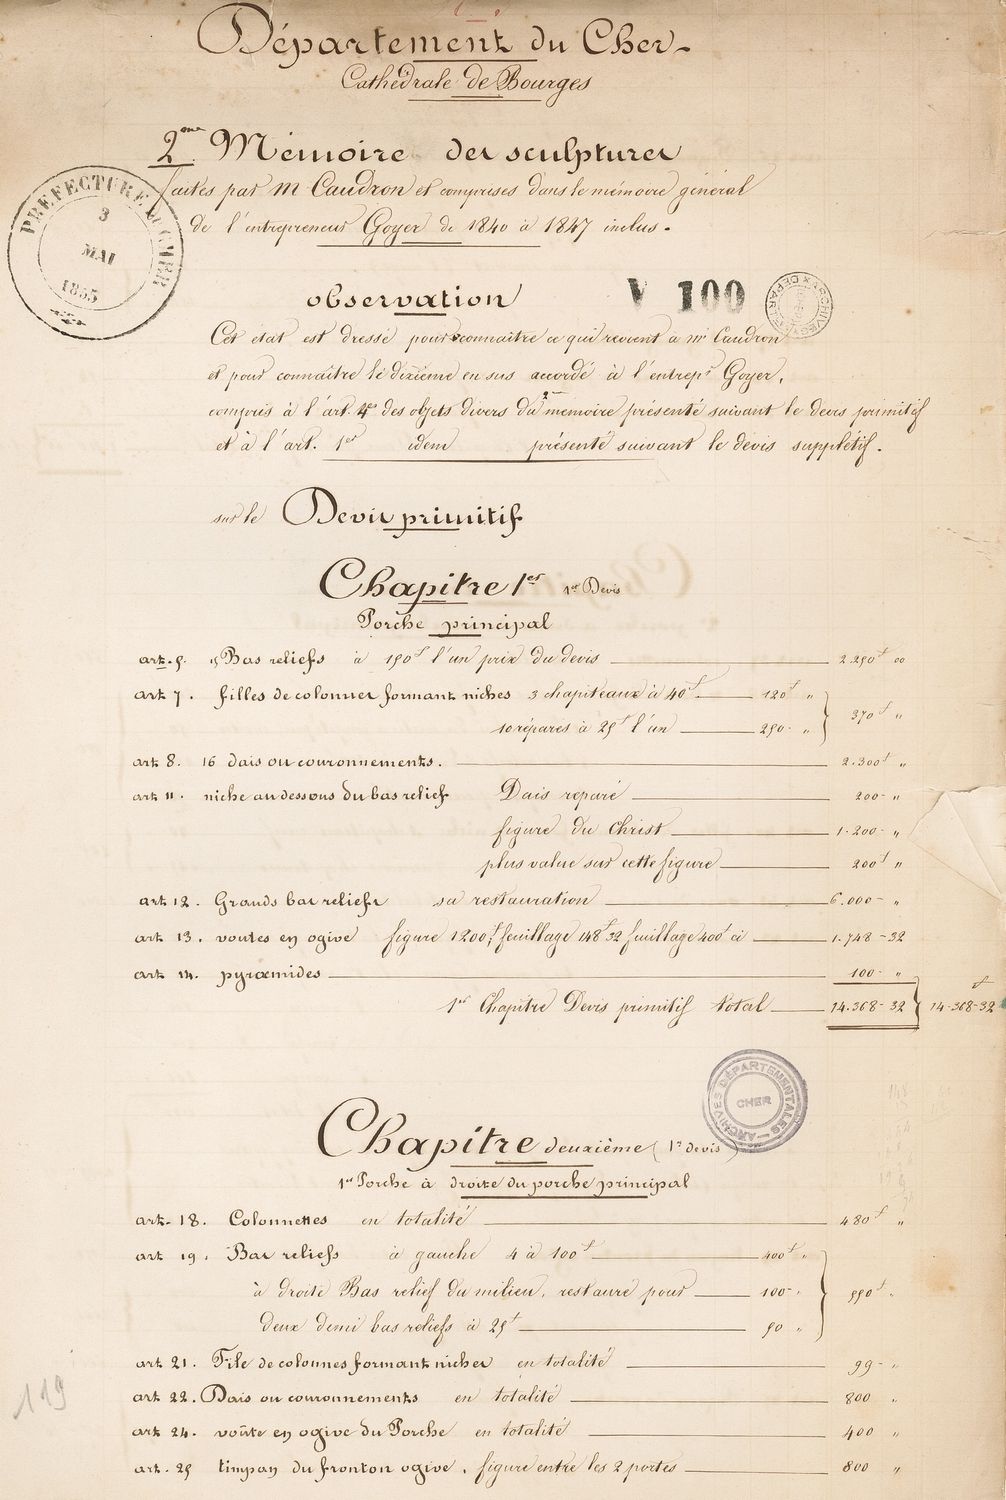 Département du Cher
Cathédrale de Bourges
2me Mémoire des sculptures
faites par M Caudron et comprises dans le mémoire général
de l'entrepreneur Goyer de 1840 à 1847 inclus.
PREFECTURE DU CHER
3
MAI
1855
observation
V 100
Cet état est dressé pour connaitre ce qui revient à mr Caudron
et pour connaître le dixième en sus accordé à l'entrepr Goyer,
compris à l'art. 4e des objets divers du 2me mémoire présenté suivant le devis primitif
et à l'art. 1er idem présenté suivant le devis supplétif.
sur le Devis primitif
Chapitre 1er 1er Devis
Porche principal
art. 5. 15 Bas reliefs à 150f l'un prix du devis 2.250f 00
art 7. filles de colonnes formant niches 3 chapiteaux à 40f 120f "
370f "
10 réparés à 25f l'un 250 - "
art 8. 16 dais ou couronnements. 2.300f "
art 11. niche au dessous du bas relief Dais réparé 200 - "
figure du Christ 1.200 - "
plus value sur cette figure 200f "
art 12. Grands bas reliefs sa restauration 6.000 - "
art 13. voutes en ogive figure 1200f, feuillage 148f 32 feuillage 400f à 1.748 - 32
art 14. pyramides 100 - "
1er Chapitre Devis primitif total 14.368 - 32 14.368f - 32
ARCHIVES DÉPARTEMENTALES
CHER
Chapitre deuxième (1er devis)
1er Porche à droite du porche principal
art. 18. Colonnettes en totalité 480f "
art 19. Bas reliefs à gauche 4 à 100f 400f "
à droite Bas relief du milieu, restauré pour 100 - " 550f "
deux demi bas reliefs à 25f 50 "
art 21. File de colonnes formant niches en totalité 99 - "
art 22. Dais ou couronnements en totalité 800 "
art 24. voûte en ogive du Porche en totalité 400 "
art. 25 timpan du fronton ogive, figure entre les 2 portes 800 "
119